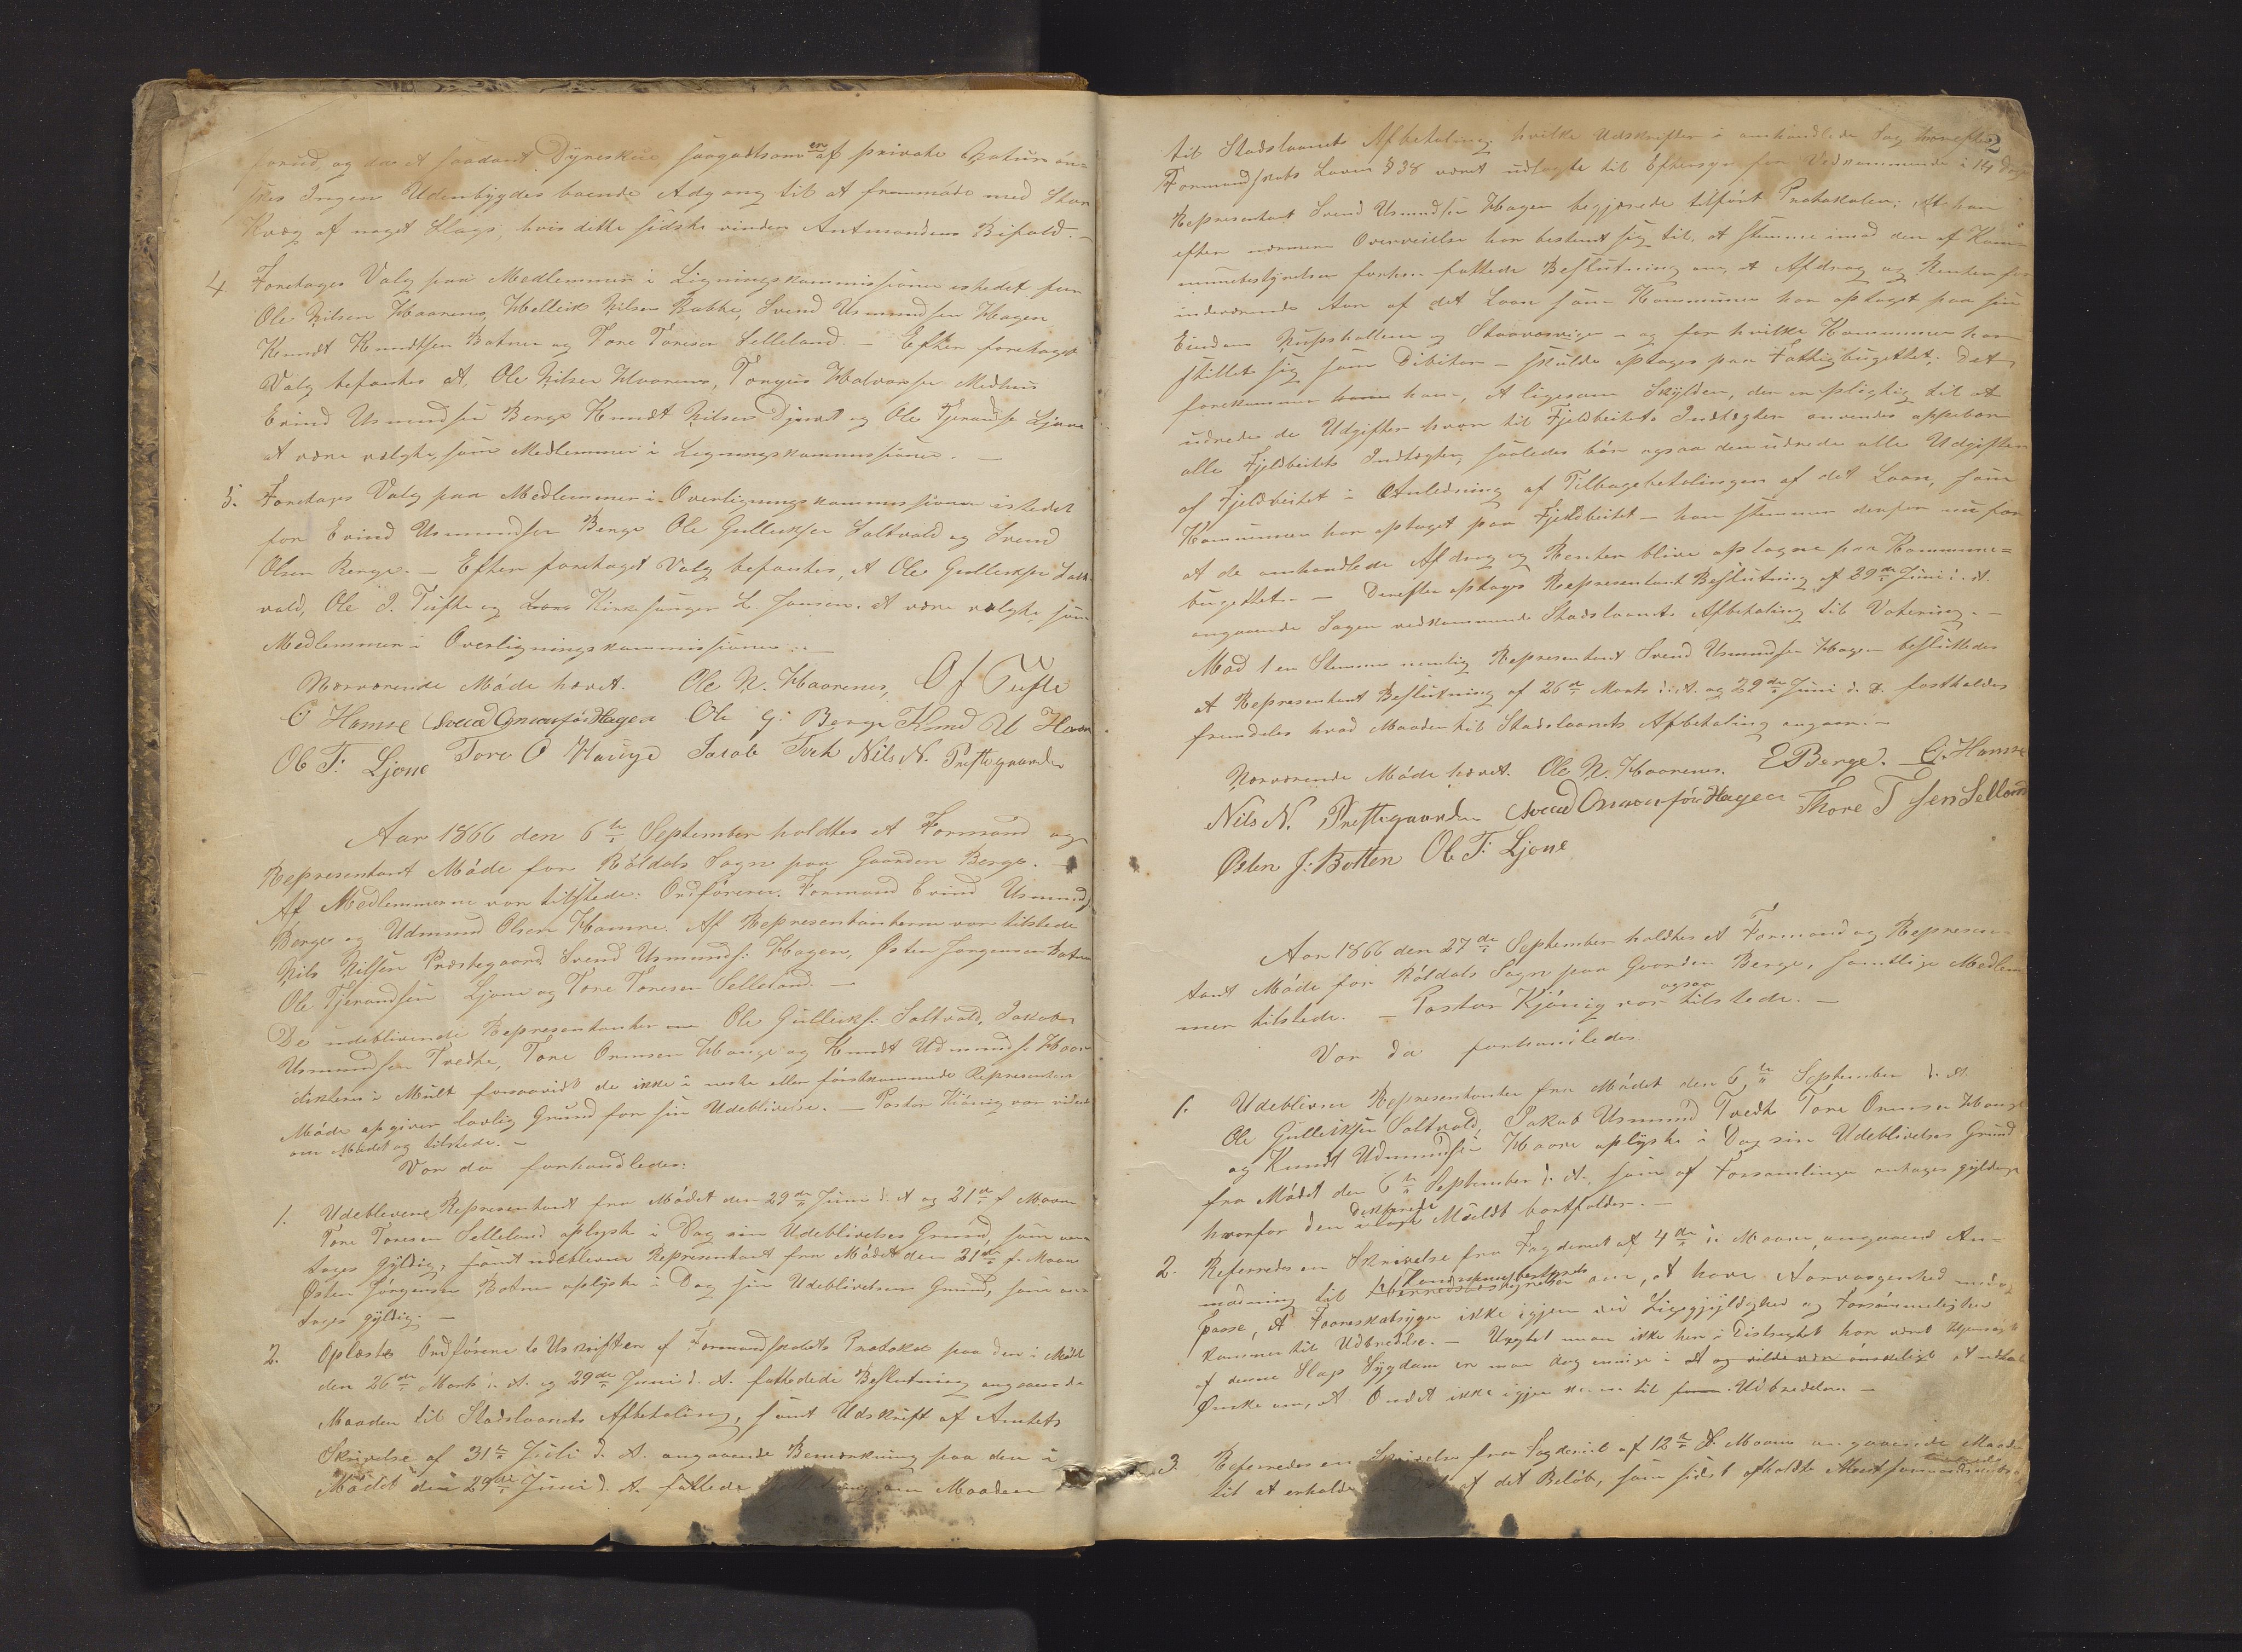 forud, og da et saadant Dyreskue saagodtsom er af privat Natur øn-
skes Ingen Udenbygdes boende Adgang til at fremmøde med Stor
Kvæg af noget Slags, hvis dette sidste vinder Amtmandens Bifald. –
4. Foretages Valg paa Medlemmer i Ligningskommissionen istedet for
Ole Nilsen Haarenes, Helleik Nilsen Rabbe, Svend Usmundsen Hagen
Knudt Knudtsen Botnen og Tore Toresen Selleland. – Efter foretaget
Valg befantes at, Ole Nilsen Haarenes, Torgius Halvorsen Medhus
Erind Usmundsen Berge Knudt Nilsen og Ole Tjerandsen Ljone
at være valgte som Medlemmer i Ligningskommissionen. –
5. Foretages Valg paa Medlemmer i Overligningskommissionen istedet
for Erind Usmundsen Berge Ole Gulleiksen Saltvold og Svend
Olsen Berge. – Efter foretaget Valg befantes, at Ole Gulleiksen Salt-
vold, Ole J. Tufte og Kirkesanger L. Jansen at være valgte som
Medlemmer i Overligningskommissionen. –
Nærværende Møde hævet. Ole N. Haarenes, O J Tufte
O Hamre Svend Osmonsøn Hagen Ole G: Berge Knud U Haare
Ole T: Ljone Tore O Hauge Jacob Tveh Nils N. Prestegaarden
Aar 1866 den 6te September holdtes et Formand og
Representant Møde for Røldals Sogn paa Gaarden Berge. –
Af Medlemmerne var tilstede: Ordføreren, Formand Erind Usmunds
Berge og Udmund Olsen Hamre. Af Representanterne var tilstede
Nils Nilsen Præstegaard, Svend Usmunds: Hagen, Østen Jørgensen Botnen
Ole Tjerandsen Ljone og Tore Toresen Selleland. –
De udeblivende Representanter Ole Gulleiks: Saltvold, Jakob
Usmundsen Tredte, Tore Ormsen Hauge og Knudt Udmunds: Haare
dikteres Mult forsaavidt de ikke i neste eller førstkommende Representant
Møde opgiver lovlig Grund for sin Udeblivelse. – Pastor Kjønig var vidende
om Mødet og tilstede. –
Var da forhandledes:
1. Udeblevene Representant fra Mødet den 29de Juni d. A og 21de f. Maan
Tore Toresen Selleland oplyste i Dag sin Udeblivelses Grund, som an-
tages gyldig, samt udeblevne Representant fra Mødet den 21de f. Maan
Østen Jørgensen Botnen oplyste i Dag sin Udeblivelses Grund, som an-
tages gyldig. –
2. Oplæstes Ordføreren to Udskrifter af Formandskabets Protokol paa den i Mødet
den 26de Marts d. A. og 29de Juni d. A. fattedede Beslutning angaaende
Maaden til Stadslaanets Afbetaling, samt Udskrift af Amtets
Skrivelse af 31te Juli d. A. angaaende Bemærkning paa den i
Mødet den 29de Juni d. A. fattede om Maaden
2
til Stadslaanets Afbetaling hvilke Udskrifter i omhandlede Sag
Formandskabs Loven § 38 været udlagte til Eftersyn for Vedkommende i 14 Dage
Representant Svend Usmundsen Hagen begjærede tilført Protokolen: At han
efter nærmere Overveielse har bestemt sig til, at stemme imod den af Kom-
munebestyrelsen forhen fattede Beslutning om, at Afdrag og Renter for
indeværende Aar af det Laan som Kommunen har optaget paa sin
Eiendom og Staavasvigen – og for hvilke Kommunen har
stillet sig som Debitor – skulde optages paa Fattigbugettet; Det
forekommer ham, at ligesom Skylden, der er pligtig til at
udrede de Udgifter hvortil Fjeldbeitets Indtægter anvendes oppebær
alle Fjeldbeitets Indtægter, saaledes bør ogsaa den udrede alle Udgifter
af Fjeldbeitet i Anledning af Tilbagebetalingen af det Laan, som
Kommunen har optaget paa Fjeldbeitet – han stemmer derfor nu for
at de omhandlede Afdrag og Renter blive optagne paa Kommune-
bugettet. – Derefter optages Representant Beslutning af 29de Juni d. A.
angaaende Sagen vedkommende Stadslaanets Afbetaling til Votering. –
Mod 1 en Stemme nemlig Representant Svend Usmundsen Hagen besluttedes
at Representant Beslutning af 26de Marts d. A. og 29de Juni d. A. fastholdes
fremdeles hvad Maaden til Stadslaanets Afbetaling angaar. –
Nærværende Møde hævet. Ole N. Haarenes. E Berge. O. Hamre
Nils N. Prestegaarden Svend Osmonsøn Hagen Thore T sen Selland
Østen J: Botten Ole T: Ljone
Aar 1866 den 27de September holdtes et Formand og Represen-
tant Møde for Røldals Sogn paa Gaarden Berge, samtlige Medlem-
mer tilstede. – Pastor Kjønig var ogsaa tilstede. –
Var da forhandledes
1. Udeblivne Representanter fra Mødet den 6te September d. A.
Ole Gulleiksen Saltvold, Jakob Usmund Tredte Tore Ormsen Hauge
og Knudt Udmundsen Haare oplyste i Dag sin Udeblivelses Grund
fra Mødet den 6te September d. A., som af Forsamlingen antages gyldige
hvorfor den dikterede Muldt bortfalder. –
2. Referredes en Skrivelse fra Fogderiet af 4de i. Maan, angaaende An-
modning til om, at have Aarvaagenhed
paase, at Faareskabsygen ikke igjen ved Ligegyldighed og Forsømmelighed
kommer til Udbredelse. – Uagtet man ikke her i Distriktet har været
af denne Slags Sygdom er man dog enige i at og vilde være ønskeligt
Ønske om, at Ondet ikke igjen til Udbredelse. –
3. Referredes en Skrivelse fra Fogderiet af 12te d. Maan angaaende Maaden
til at erholde af det Beløb, som sidst afholdte